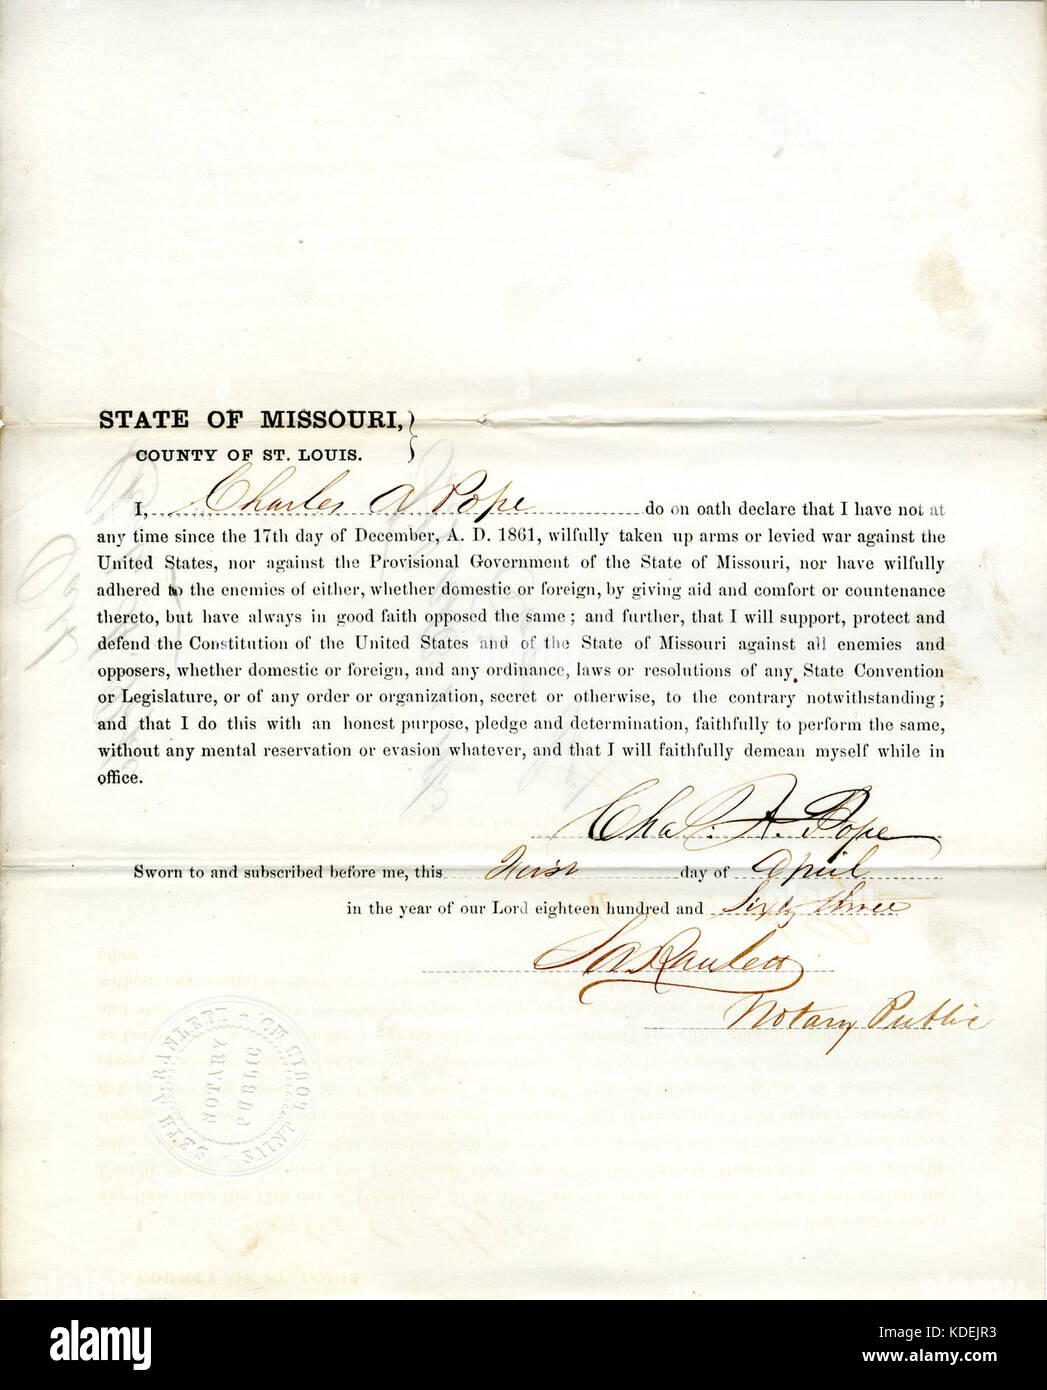 STATE OF MISSOURI,
COUNTY OF ST. LOUIS.
I, Charles A Pope do on oath declare that I have not at
any time since the 17th day of December, A. D. 1861, wilfully taken up arms or levied war against the
United States, nor against the Provisional Government of the State of Missouri, nor have wilfully
adhered to the enemies of either, whether domestic or foreign, by giving aid and comfort or countenance
thereto, but have always in good faith opposed the same; and further, that I will support, protect and
defend the Constitution of the United States and of the State of Missouri against all enemies and
opposers, whether domestic or foreign, and any ordinance, laws or resolutions of any State Convention
or Legislature, or of any order or organization, secret or otherwise, to the contrary notwithstanding;
and that I do this with an honest purpose, pledge and determination, faithfully to perform the same,
without any mental reservation or evasion whatever, and that I will faithfully demean myself while in
office.
Chas. A. Pope
Sworn to and subscribed before me, this First day of April
in the year of our Lord eighteen hundred and Sixty three
S A Ranlett
Notary Public
SETH A. RANLETT
NOTARY
PUBLIC
SAINT LOUIS
alamy
Image ID: KDEJR3
www.alamy.com